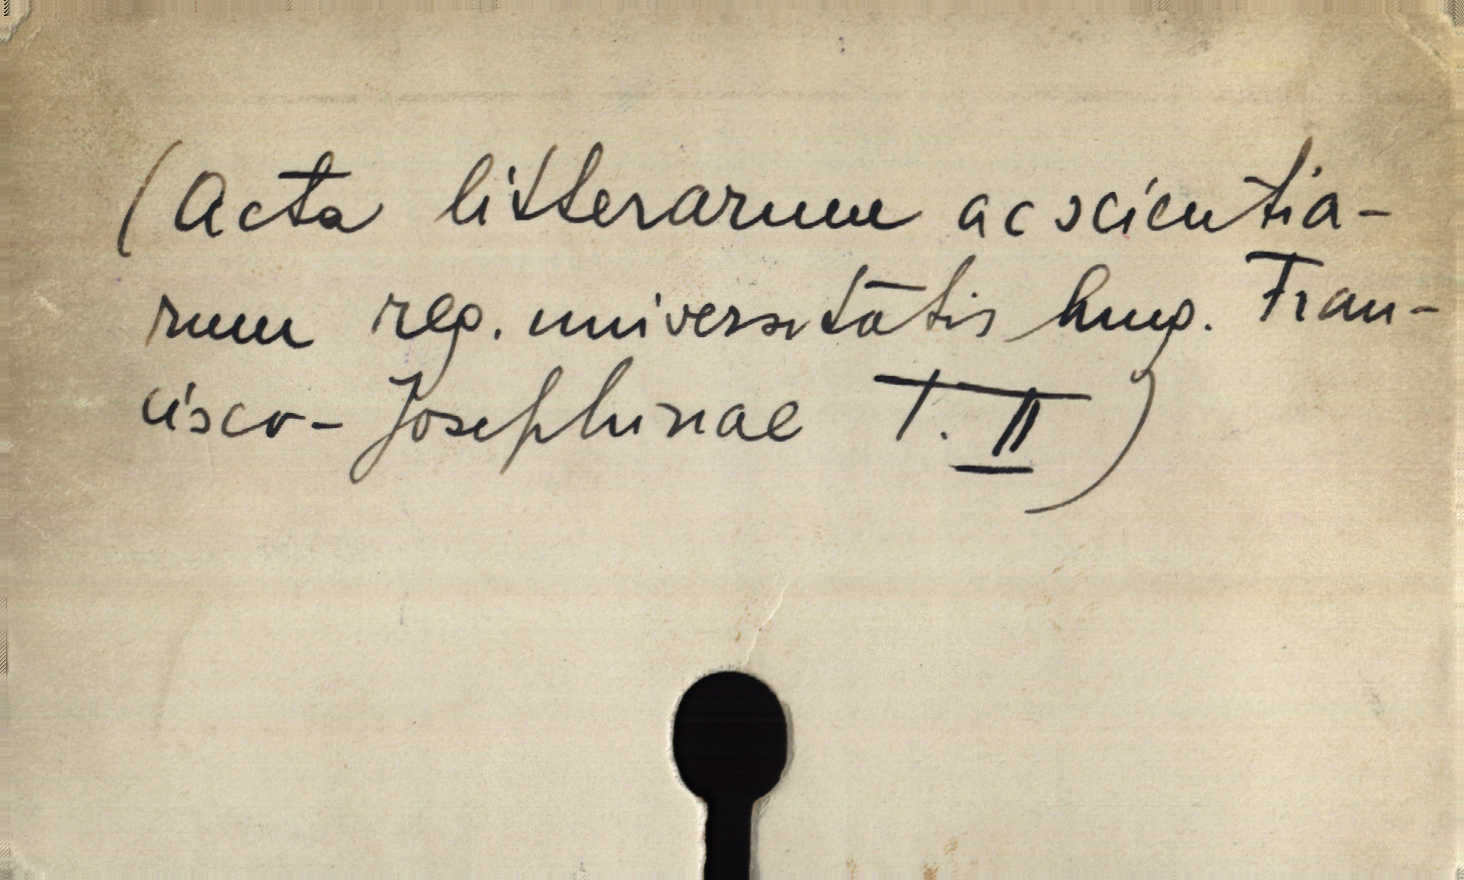 (Acta litterarum ac scientia-
rum reg. universitatis hung. Fran-
cisco-Josephinae T. II)